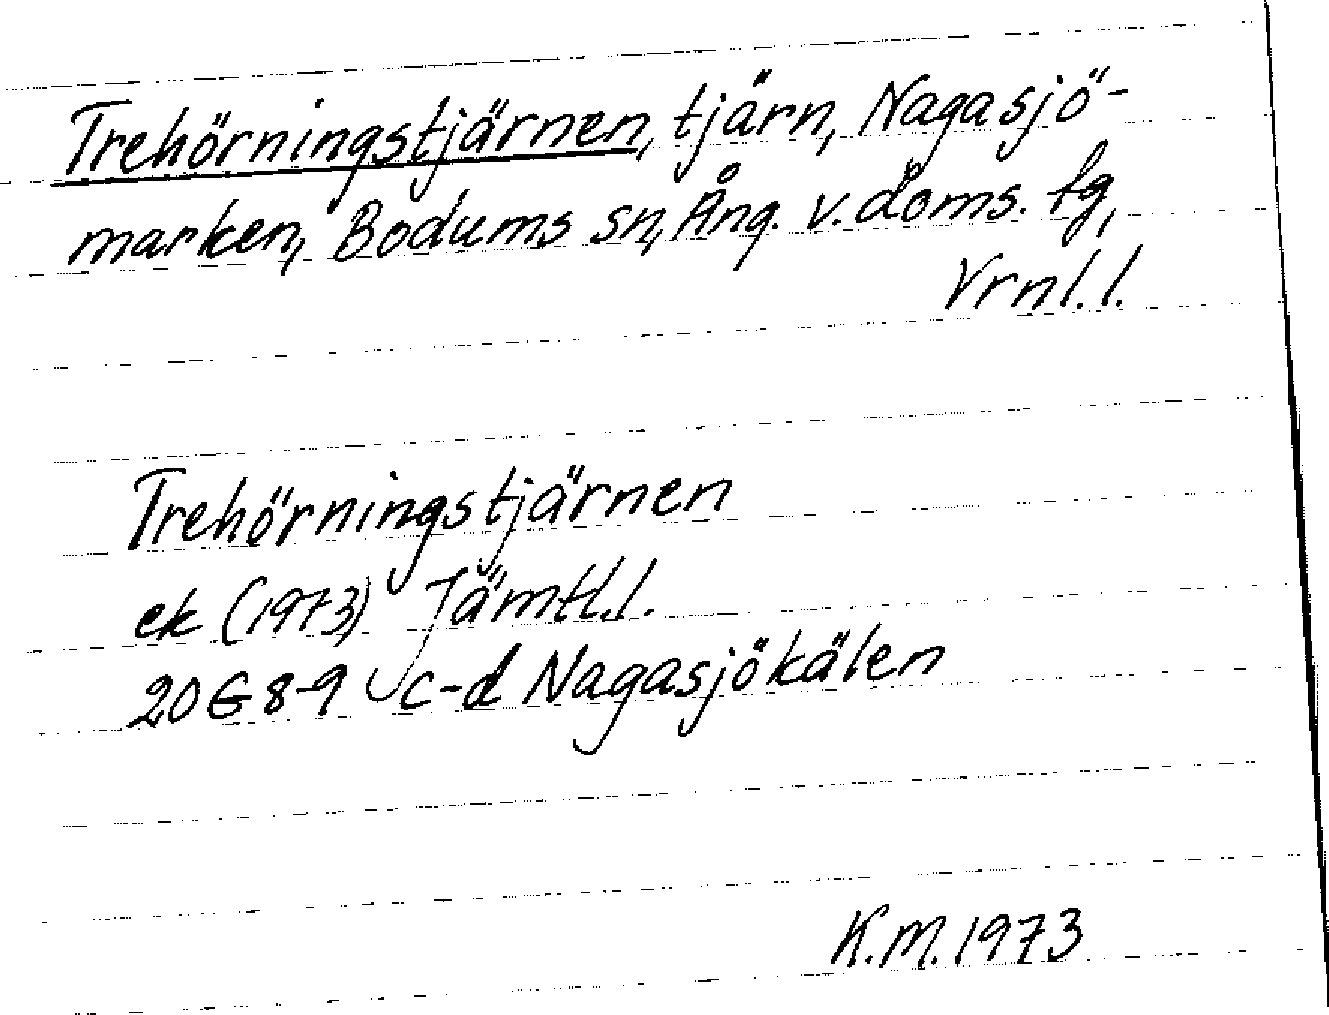 Trehörningstjärnen, tjärn, Nagasjö-
marken, Bodums sn, Ång. v. doms. fg,
Vrnl. l.
Trehörningstjärnen
ek (1973) Jämtl.l.
20 G 8-9 c-d Nagasjökälen
K.M. 1973